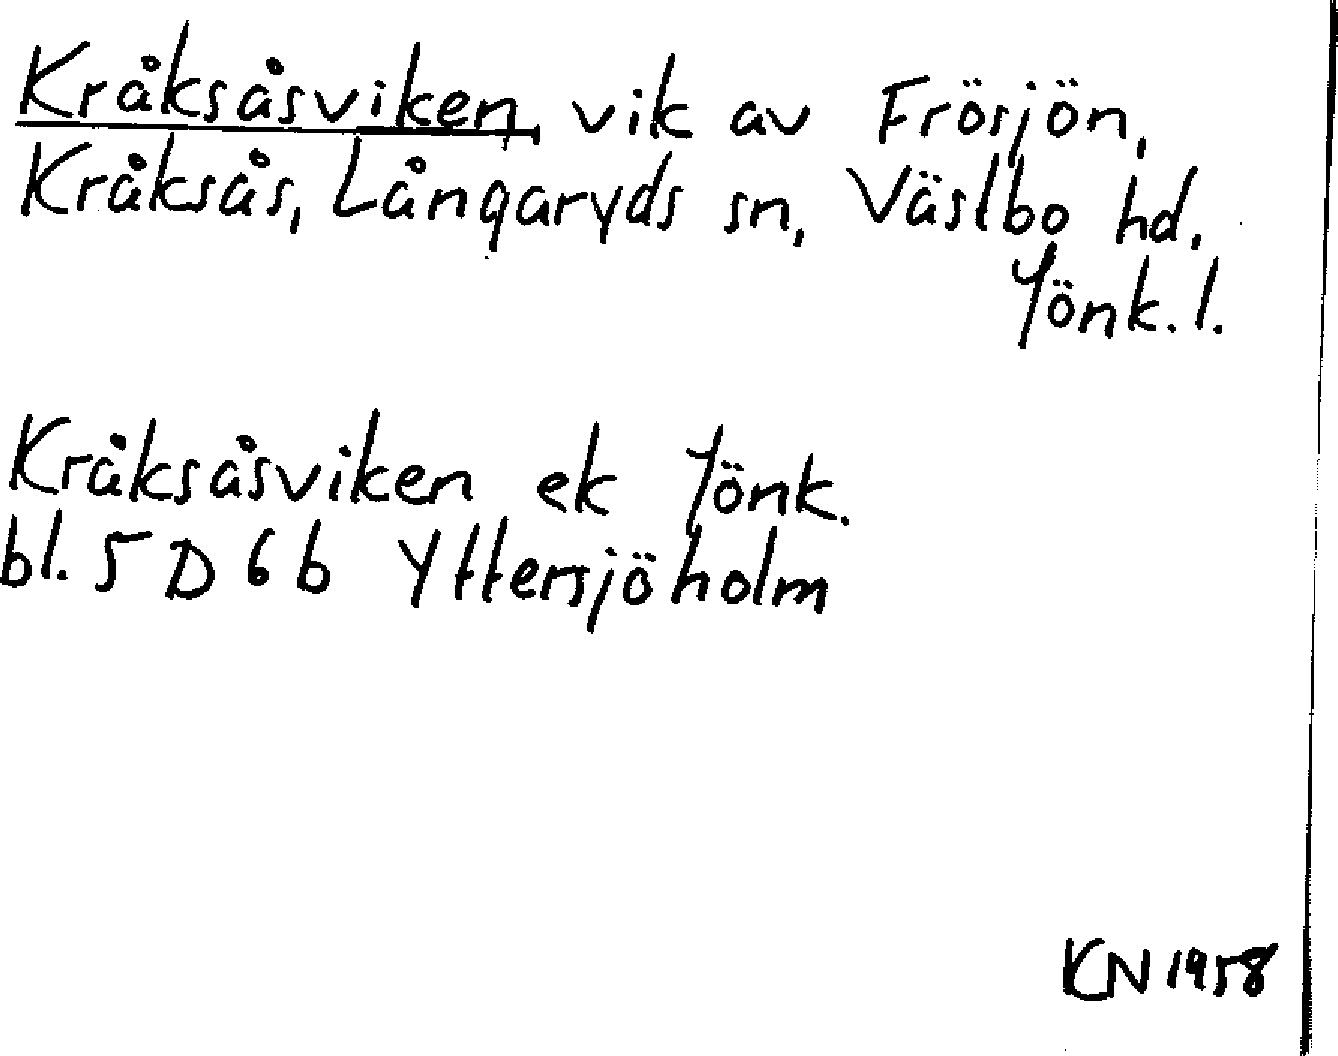 Kråksåsviken, vik av Frösjön,
Kråksås, Långaryds sn, Västbo hd,
Jönk. l.
Kråksåsviken ek Jönk.
bl. 5 D 6 b Yttersjöholm
KN 1958